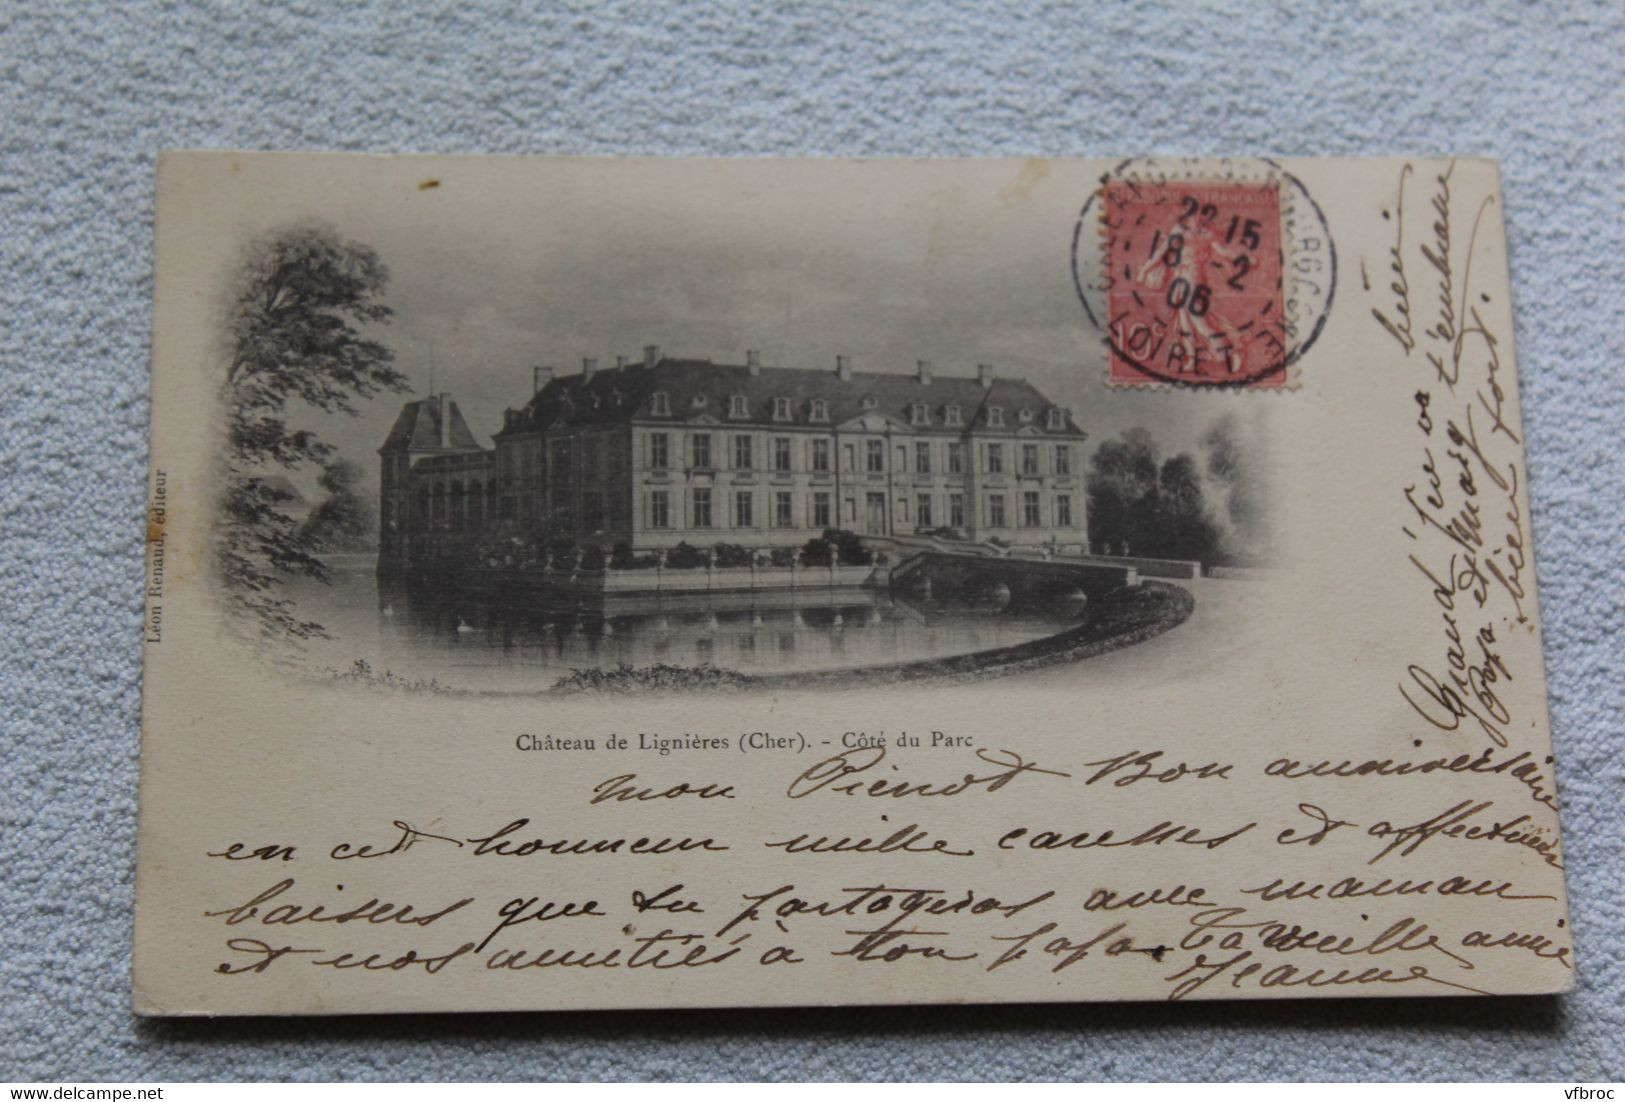 Léon Renaud, éditeur
22 15
18 -2
06
LOIRET
10c
Château de Lignières (Cher). - Côté du Parc
mon Pierrot Bon anniversaire
en cet honneur mille caresses et affectueux
baisers que tu partageras avec maman
et nos amitiés à ton papa. Ta vieille amie
Jeanne
Grand' père va bien
et Marg t'embrasse
Papa et bien bien fort.
delcampe.net
vfbroc